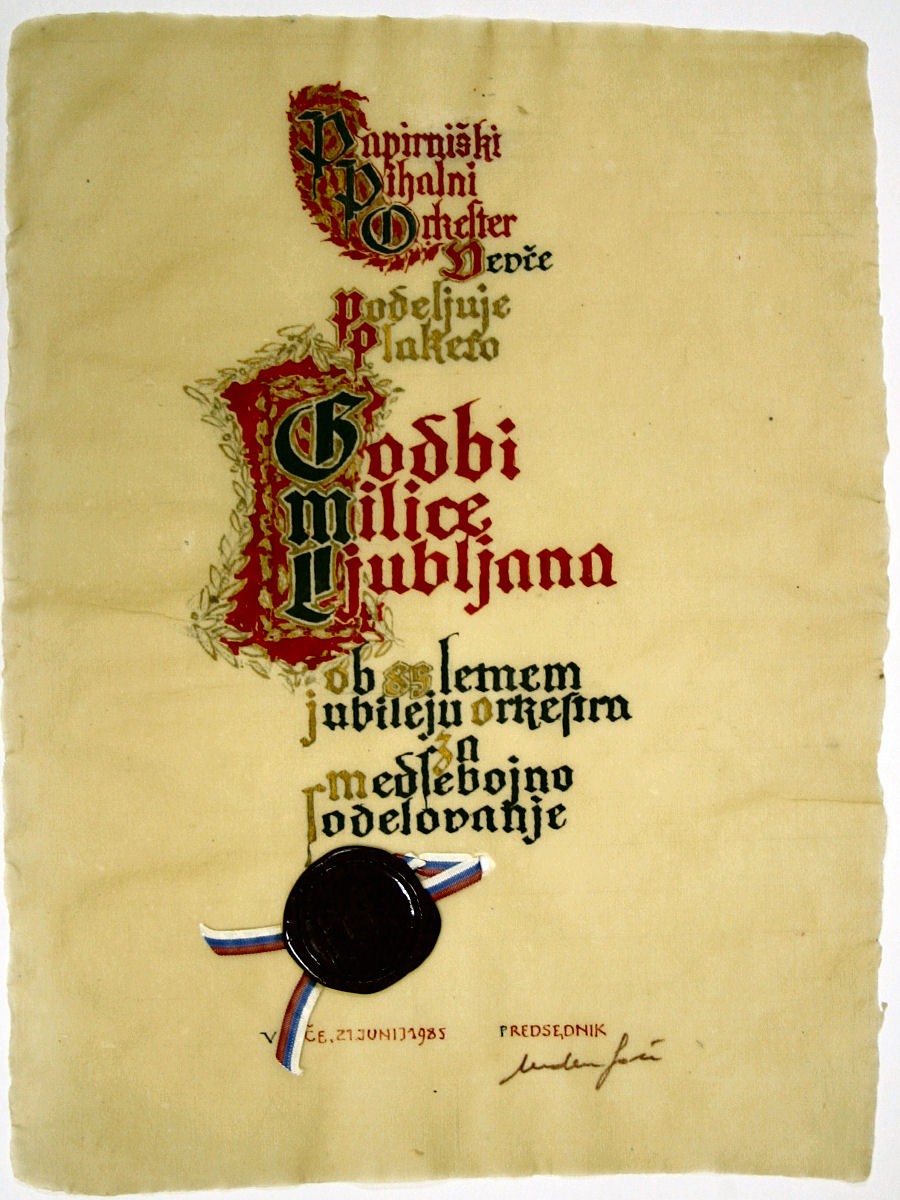 Papirniški
Pihalni
Orkester
Vevče
podeljuje
plaketo
Godbi
milice
Ljubljana
ob 85 letnem
jubileju orkestra
za
medsebojno
sodelovanje
ČE, 21. JUNIJ 1985 PREDSEDNIK